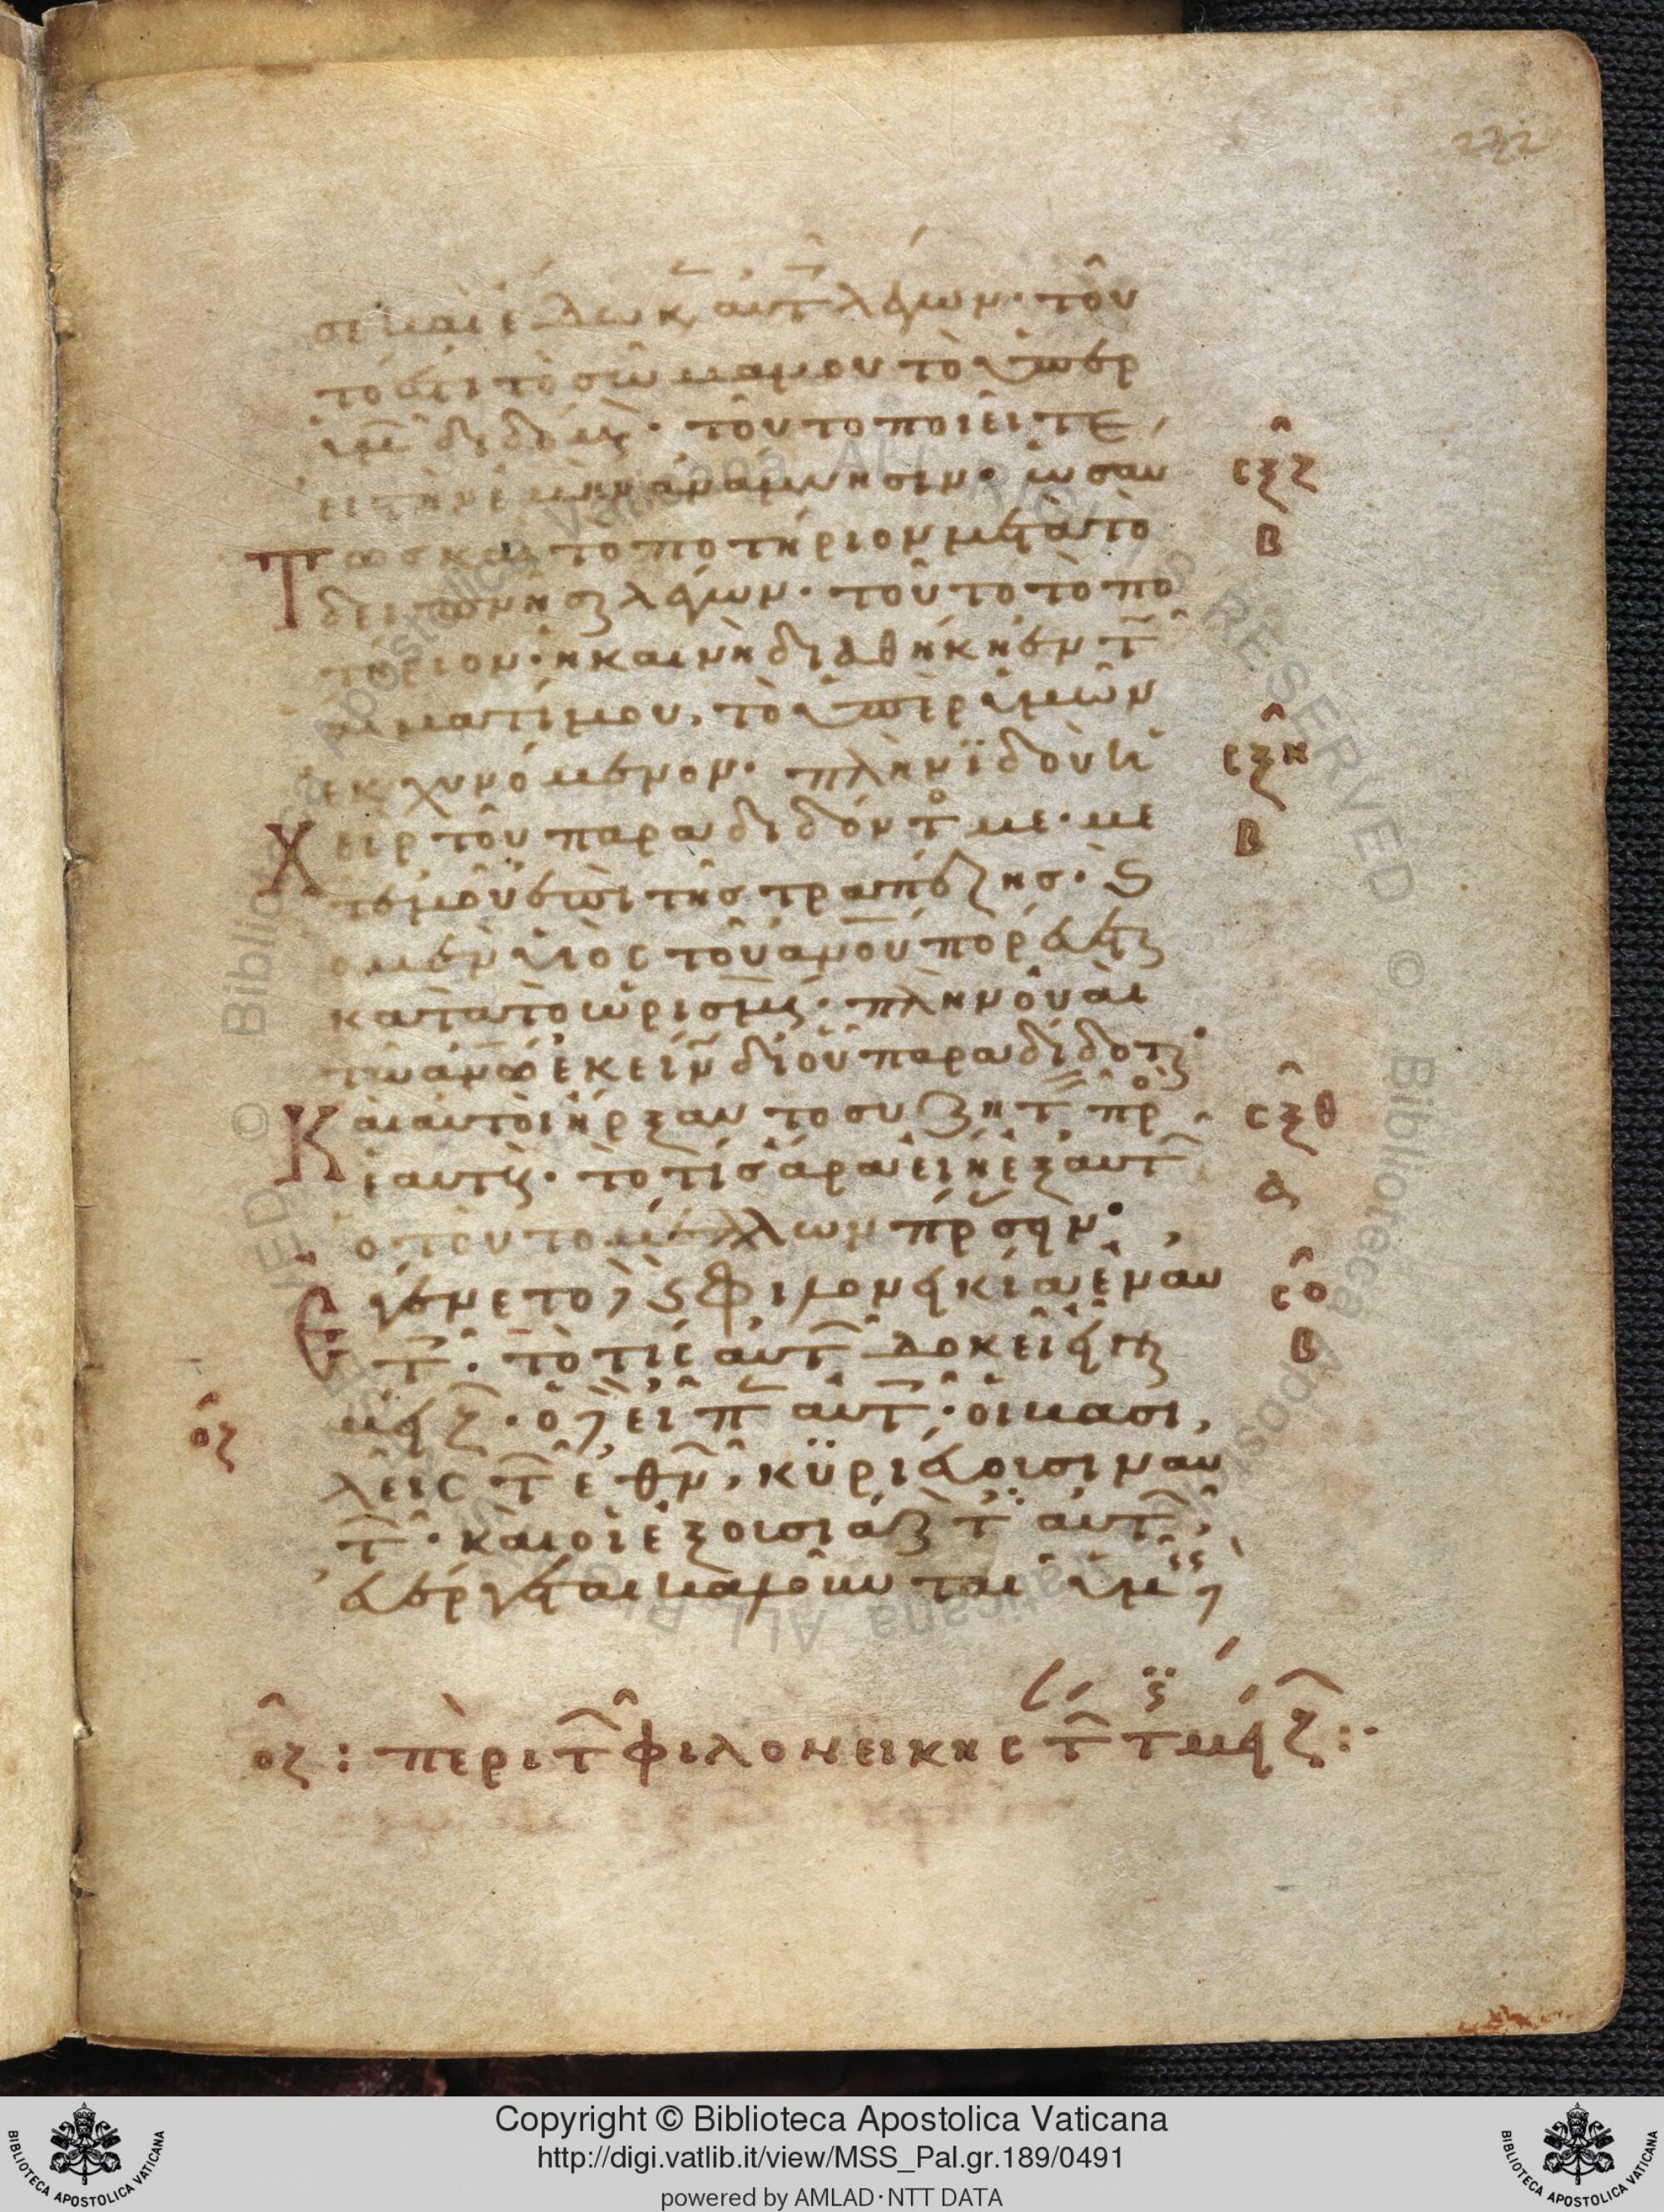 232
σε καὶ ἔδωκ αὐτ λέγων· τοῦ
τό ἐστι τὸ σῶμα μου τὸ ὑπὲρ
ὑμ διδόμς· τοῦτο ποιεῖτε,
εἰς τὴν ἐμὴν ἀνάμνησιν· ὡσαυ
τως καὶ τὸ ποτήριον μετὰ τὸ
δειπνῆσαι λέγων· τοῦτο τὸ πο
τήριον· ἡ καινὴ διαθήκη ἐν τ
αἵματί μου, τὸ ὑπὲρ ὑμῶν
ἐκχυνόμενον· πλὴν ἰδοὺ ἡ
Χεὶρ τοῦ παραδιδόντ με· με
τ ἐμοῦ ἐπὶ τῆς τραπέζης· ϛ
ὁ μὲν υἱὸς τοῦ ανου πορεύετ
κατὰ τὸ ὡρισμς· πλὴν οὐαὶ
τῶ ανω ἐκείν δι οὗ παραδίδοτ
Καὶ αὐτοὶ ἤρξαντο συζητ πρ
ἑαυτς· τὸ τίς ἄρα εἴη ἐξ αὐτ
ὁ τοῦτο μέλλων πράσσειν·
Ἐγένετο ϛ φιλονεικία ἐν αυ
τ· τὸ τίς αὐτ δοκεῖ εἶναι
μείζ· ὁ εἶπ αὐτ· οἱ βασι,
λεῖς τ ἐθν, κυριεύουσιν αυ
τ· καὶ οἱ ἐξουσιάζ τ αὐτ,
εὐεργέται καλοῦνται ὑμ
σξζ
β
σξη
β
σξθ
α
σο
β
οζ
οζ: περὶ τ φιλονεικης τ τ μείζ:·
Copyright © Biblioteca Apostolica Vaticana
http://digi.vatlib.it/view/MSS_Pal.gr.189/0491
powered by AMLAD·NTT DATA
BIBLIOTECA APOSTOLICA VATICANA
BIBLIOTECA APOSTOLICA VATICANA